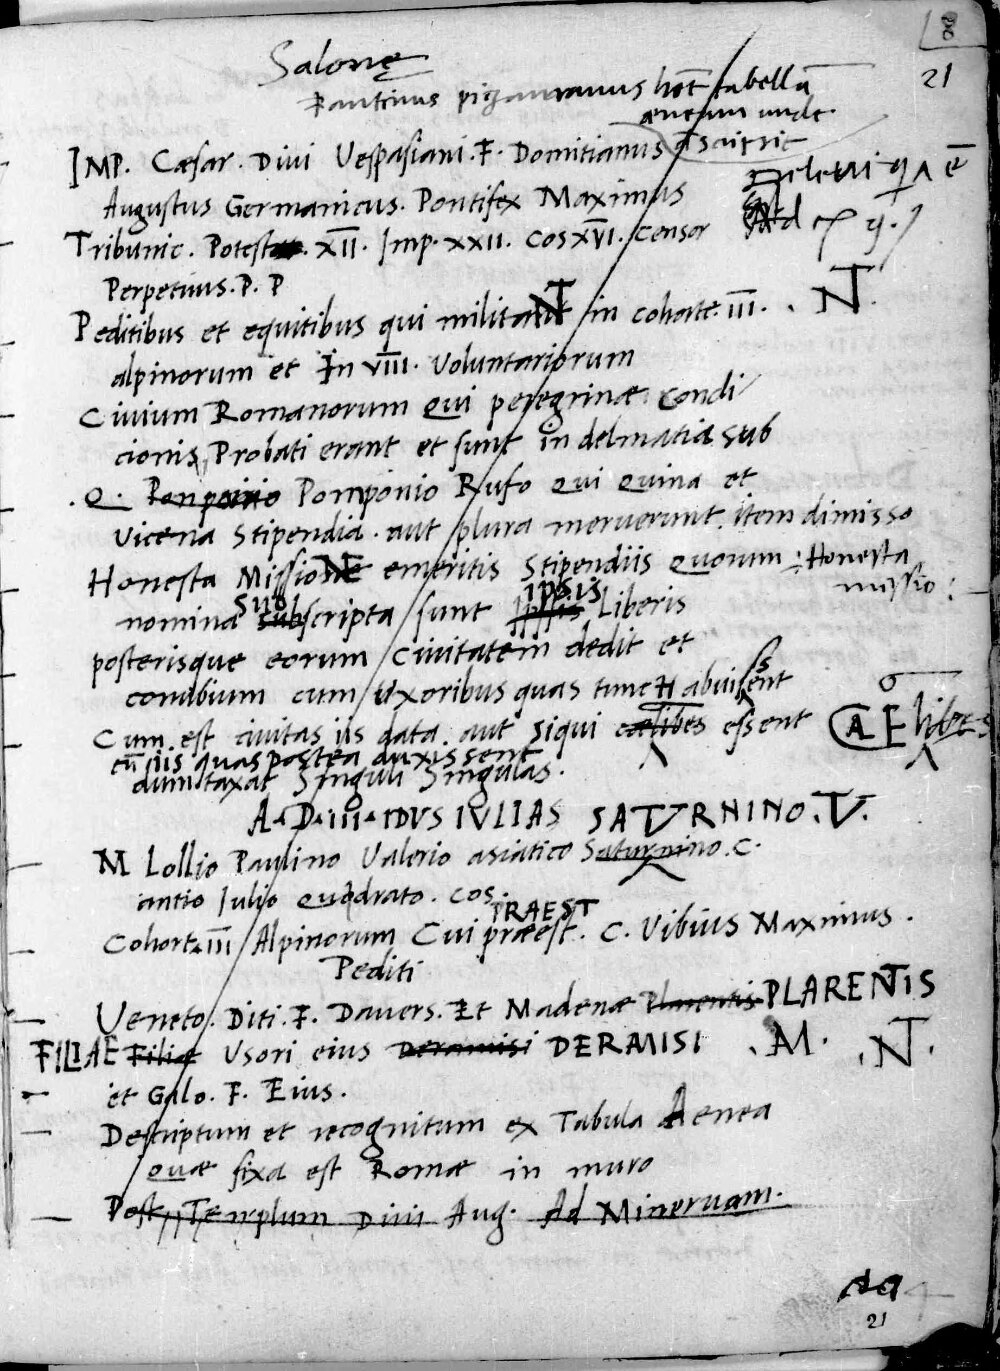 21
Salonę
aeneam unde
IMP. Cæsar. Divi Vespasiani. F. Domitianus
Augustus Germanicus. Pontifex Maximus
Tribunic. Potestat. XII. Imp. XXII. Cos XVI. Censor
Perpetuus. P. P
Peditibus et equitibus qui militant in cohorte. III. . NT.
alpinorum et In VIII. Voluntariorum
Civium Romanorum Qui peregrinæ Condi
cionis Probati erant et sunt in delmatia sub
. Q . Pomponio Rufo Qui Quina et
Vicena Stipendia . aut plura meruerunt. item dimisso
Honesta Missione emeritis Stipendiis Quorum : Honesta
missio :
nomina subscripta sunt ipsis Liberis
posterisque eorum Civitatem dedit et
conubium cum Uxoribus quas tunc Habuissent
Cum est civitas iis data . aut Siqui cælibes essent
cū iis quas postea duxissent
dumtaxat Singuli Singulas.
A. D. III. IDVS IVLIAS SATVRNINO. V.
M Lollio Paulino Valerio asiatico Saturnino . C.
antio Iulio Quadrato . Cos.
PRAEST
Cohort. III Alpinorum Cui præest . C. Vibius Maximus .
Pediti
Veneto. Diti. F. Davers. Et Madenæ Plarentis PLARENTIS
FILIAE Filiæ Usori eius Deramisi DERAMISI . M. . NT.
et Gaio. F. Eius.
Descriptum et recognitum ex Tabula Aenea
quæ fixa est Romæ in muro
Post Templum Divi Aug. Ad Minervam.
21